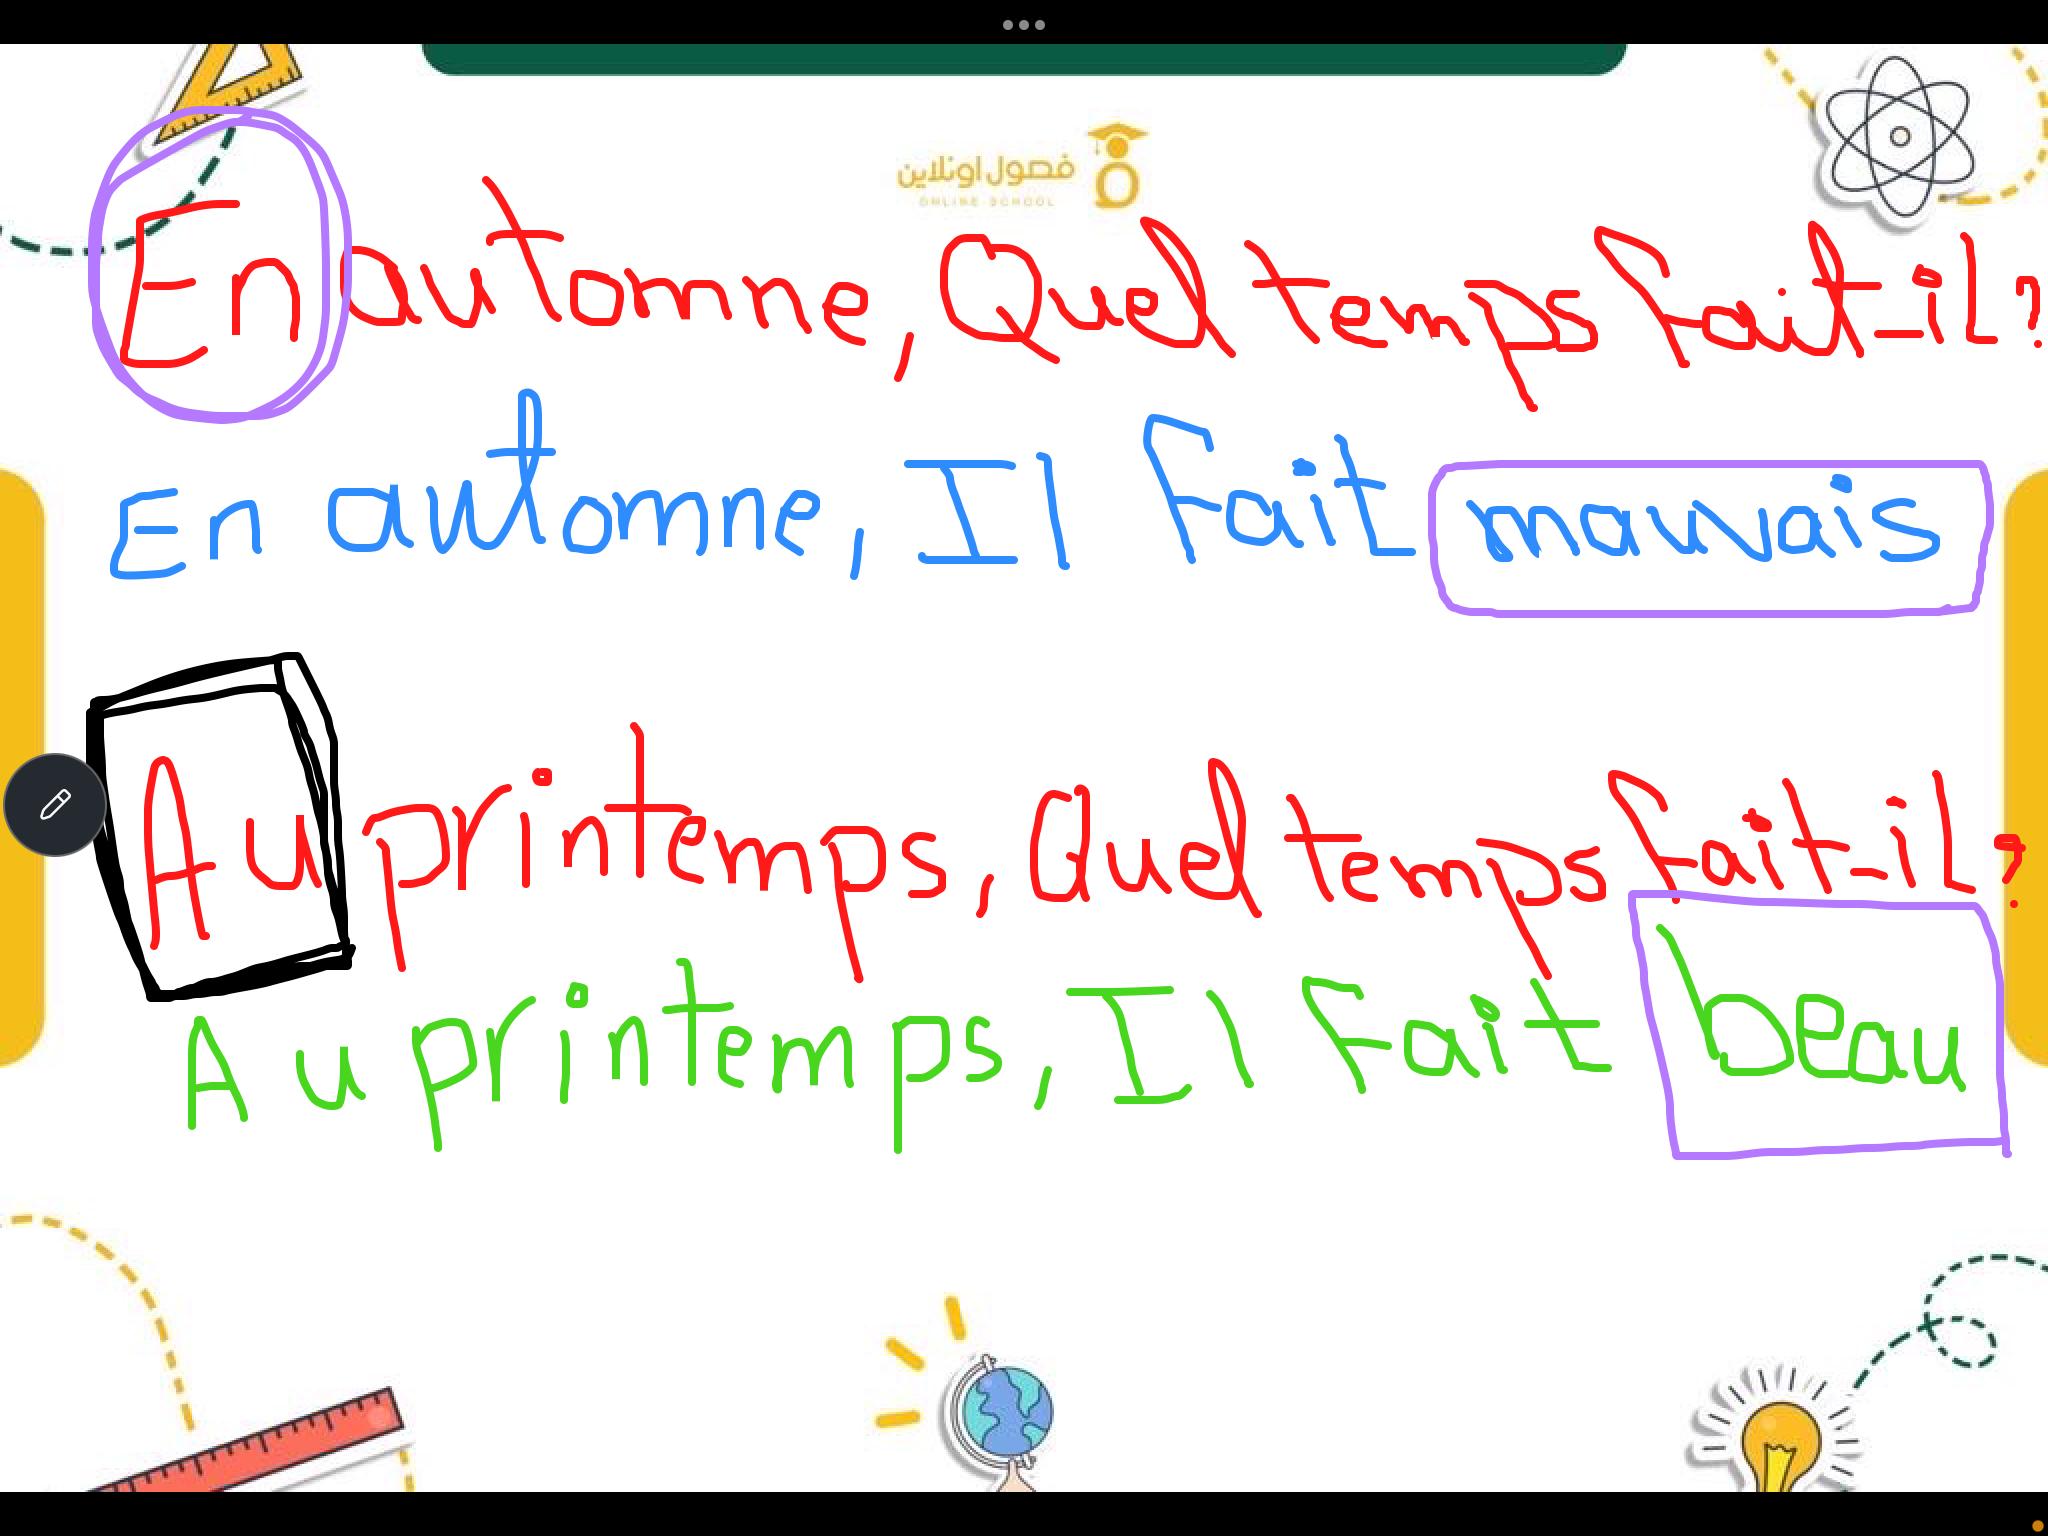 فصول اونلاين
ONLINE SCHOOL
En automne, Quel temps fait-il?
En automne, Il fait mauvais
Au printemps, Quel temps fait-il?
Au printemps, Il fait beau